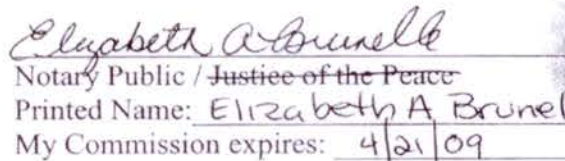 Elizabeth A Brunelle
Notary Public / Justice of the Peace
Printed Name: Elizabeth A Brunel
My Commission expires: 4/21/09